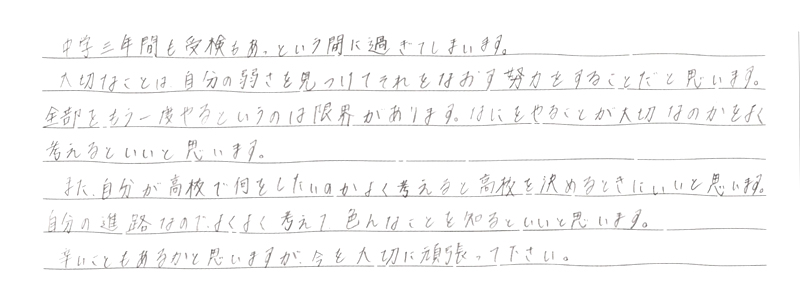 中学三年間も受検もあっという間に過ぎてしまいます。
大切なことは、自分の弱さを見つけてそれをなおす努力をすることだと思います。
全部をもう一度やるというのは限界があります。なにをやることが大切なのかをよく
考えるといいと思います。
また、自分が高校で何をしたいのかよく考えると高校を決めるときにいいと思います。
自分の進路なので、よくよく考えて色んなことを知るといいと思います。
辛いこともあるかと思いますが、今を大切に頑張って下さい。